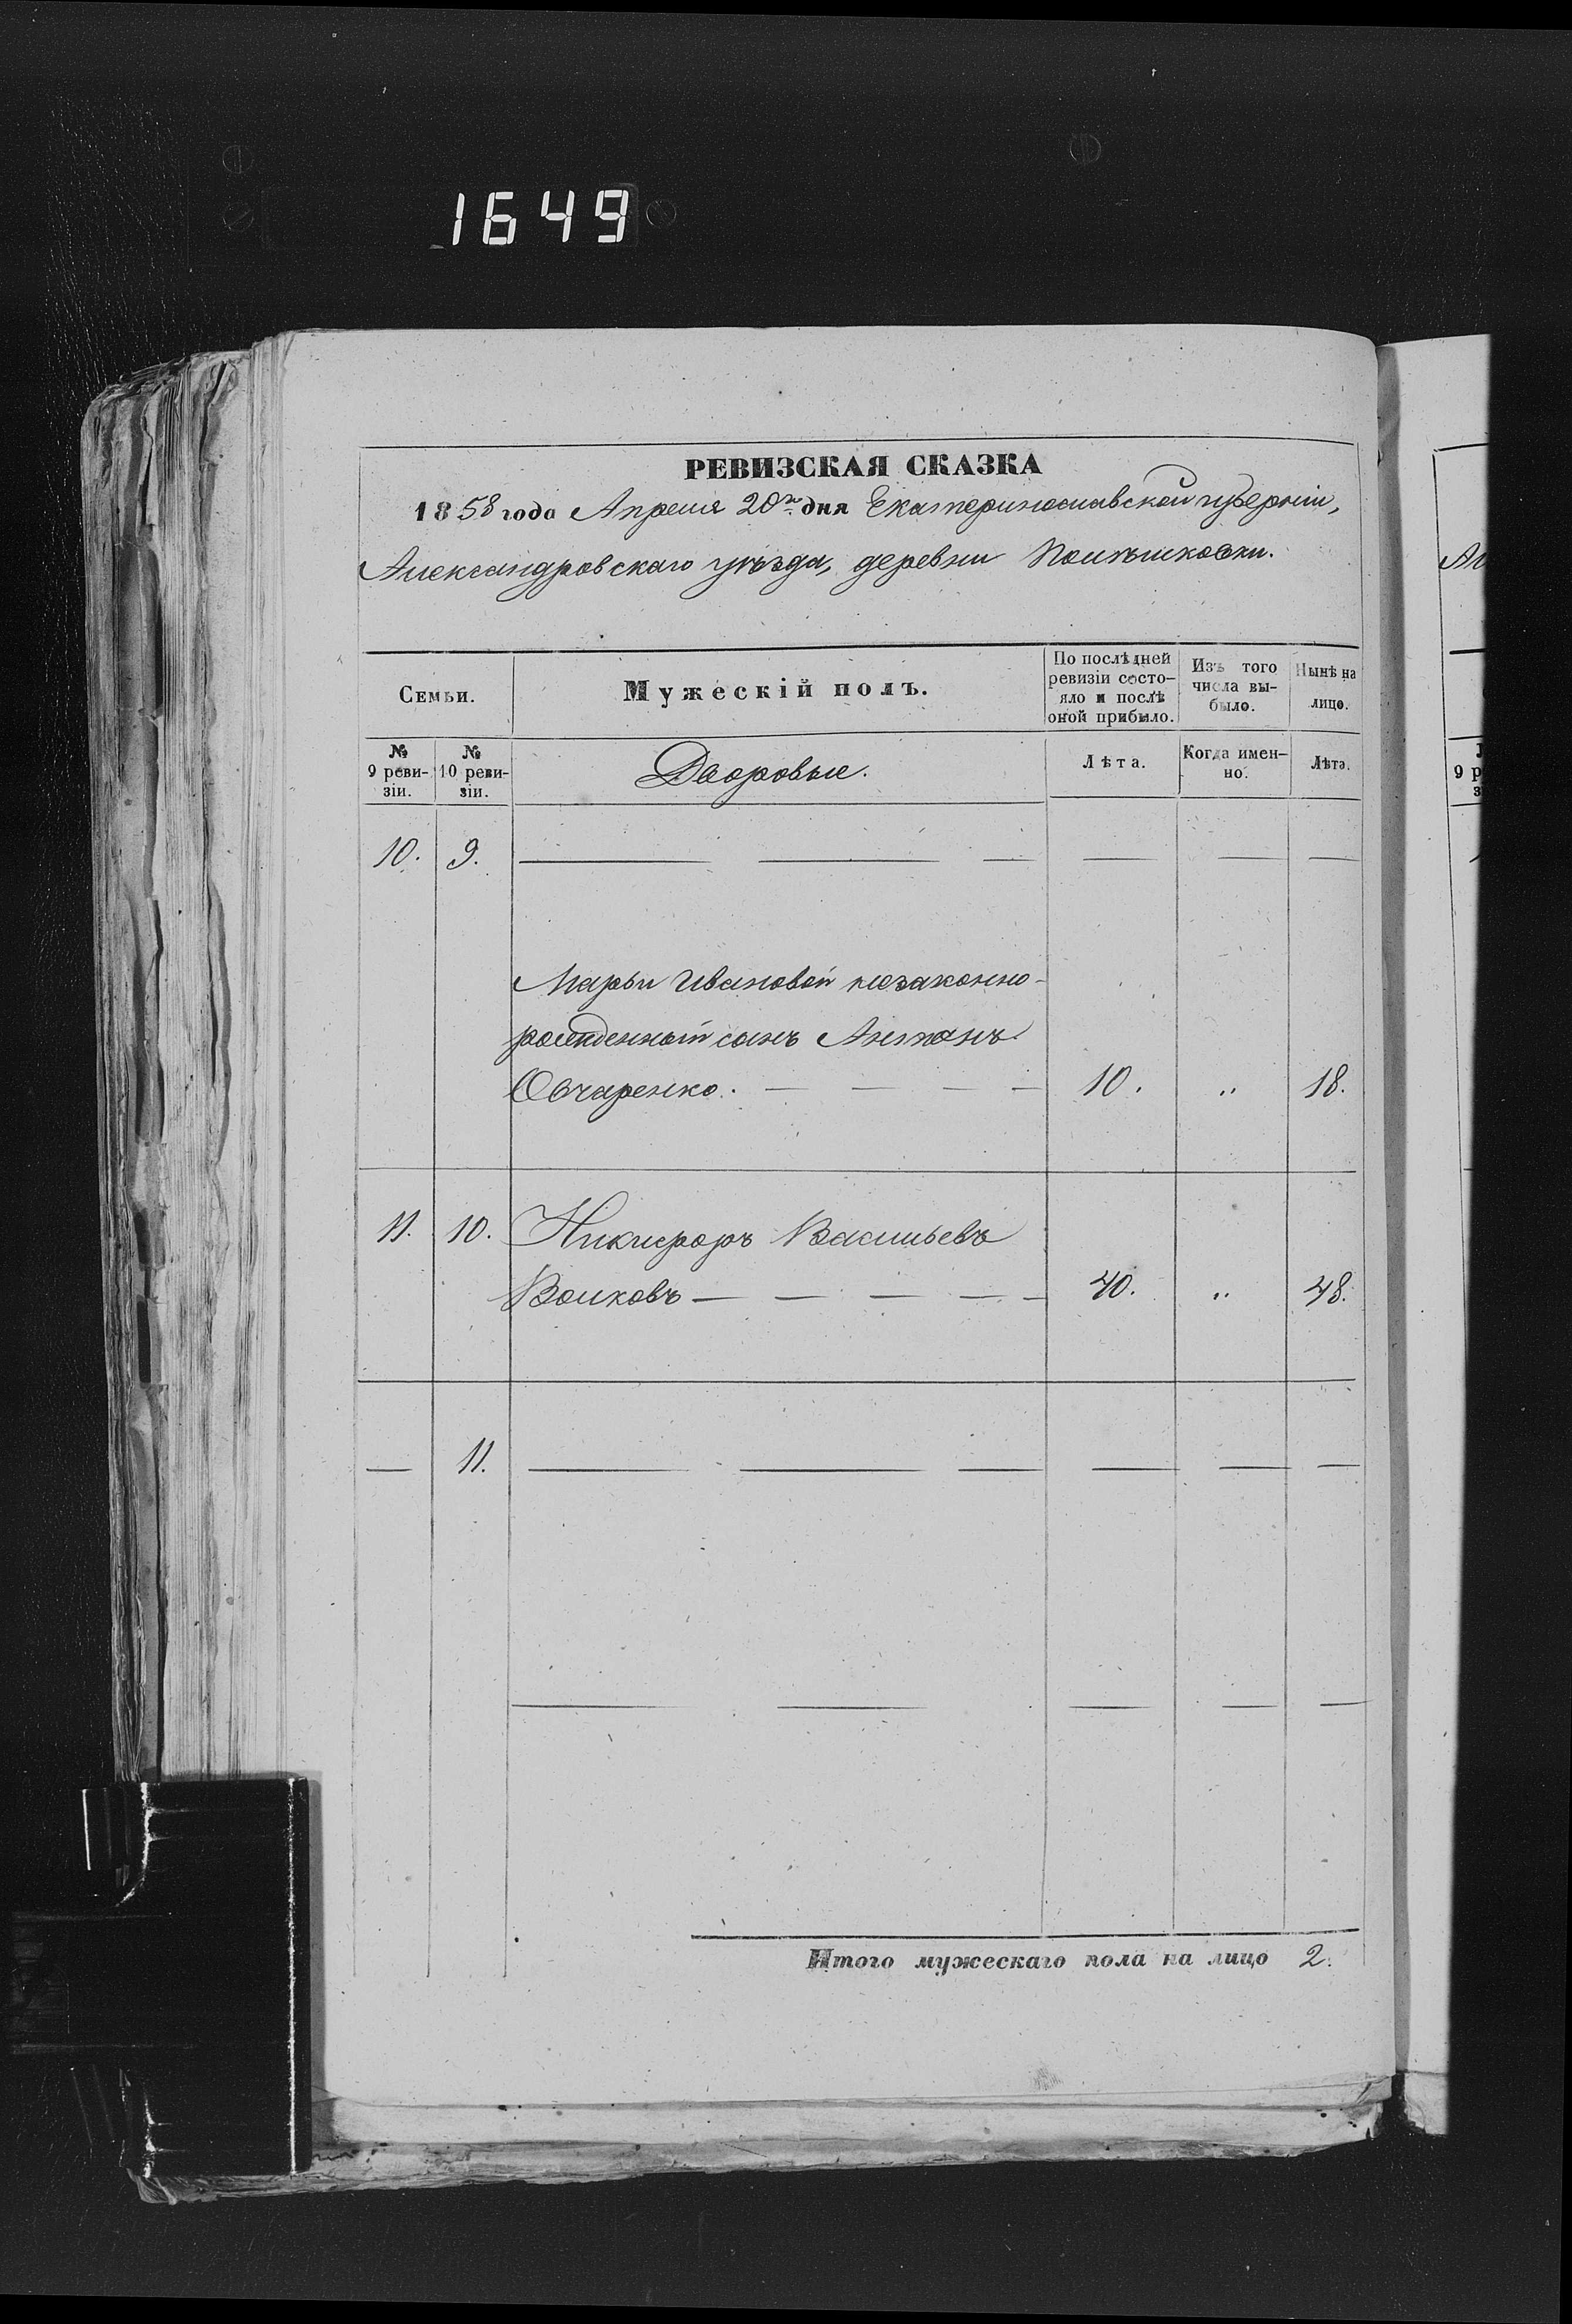 1649
РЕВИЗСКАЯ СКАЗКА
1858 года Апреля 20го дня Екатеринославской губерніи,
Александровскаго уѣзда, деревни
Семьи.
Мужескій полъ.
По послѣдней ревизіи состо-
яло и послѣ оной прибыло.
Изъ того числа вы-
было.
Нынѣ на лицо.
№ 9 реви-
зіи.
№ 10 реви-
зіи.
Дворовые.
Лѣта.
Когда имен-
но.
Лѣта.
10. 9. — — — — — —
Марьи Ивановой незаконно-
рожденный сынъ Антонъ
Овчаренко. — — — — 10. „ 18.
11. 10. Никифоръ Васильевъ
Волковъ — — — — — 40. „ 48.
— 11. — — — — — —
— — — — —
Итого мужескаго пола на лицо 2.
Ал
9 р